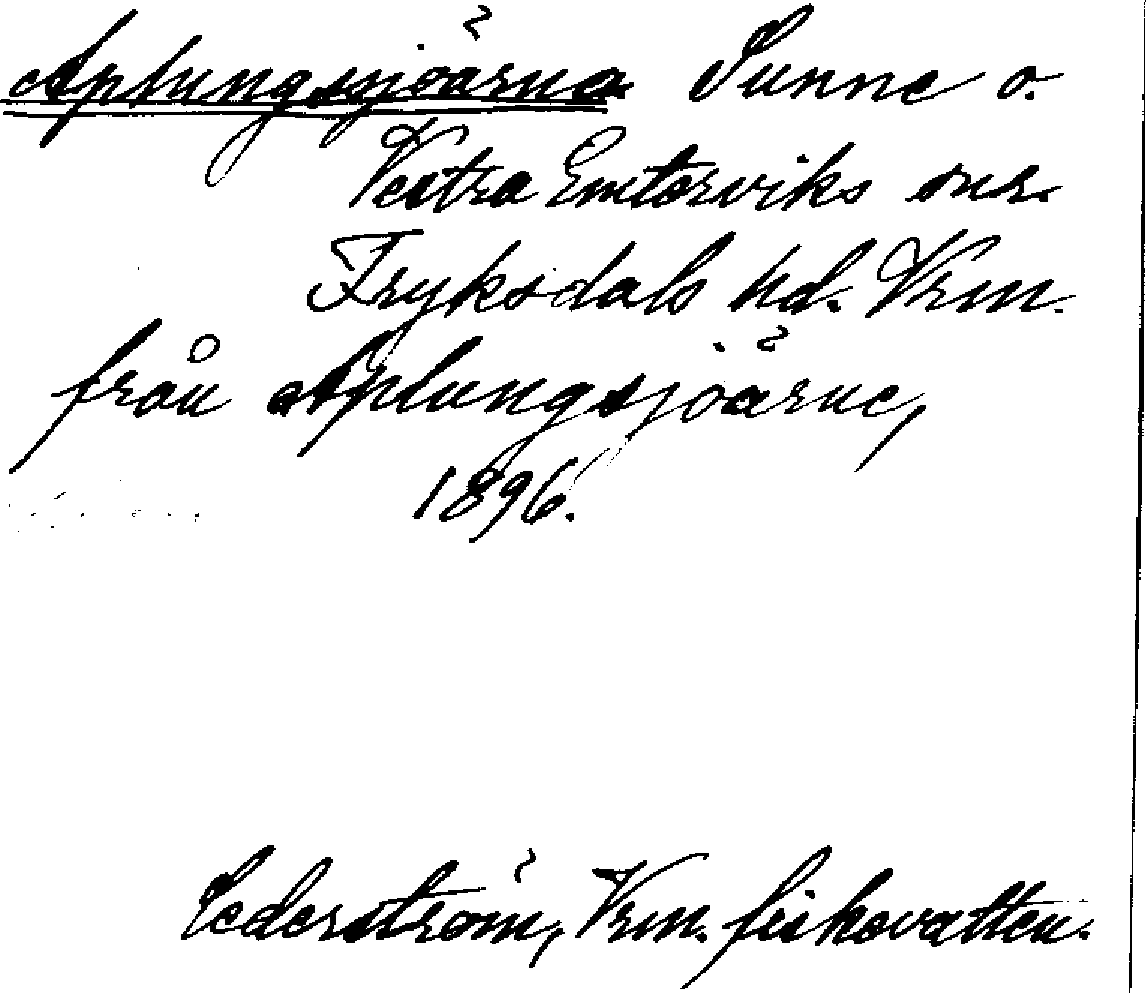 Aplungsjöarna Sunne o.
Västra Ämterviks snr.
Fryksdals hd. Vrm.
från Aplungsjöarne,
1896.
Cederström, Vrm. fiskevatten.